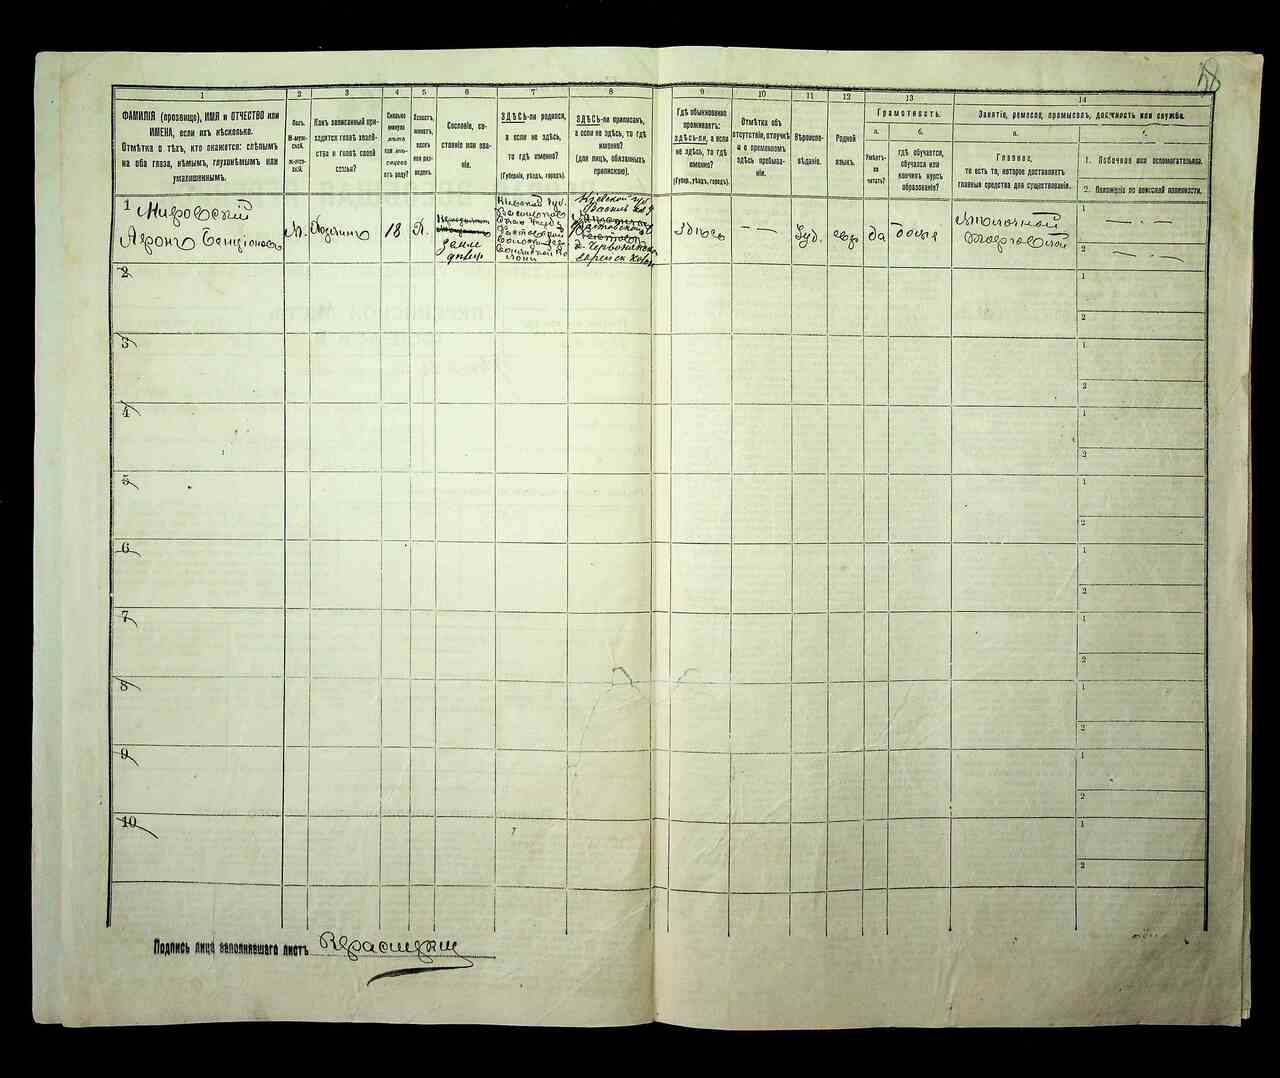 58
1
2
3
4
5
6
7
8
9
10
11
12
13
14
ФАМИЛІЯ (прозвище), ИМЯ и ОТЧЕСТВО или
ИМЕНА, если ихъ нѣсколько.
Отмѣтка о тѣхъ, кто окажется: слѣпымъ
на оба глаза, нѣмымъ, глухонѣмымъ или
умалишеннымъ.
Полъ.
Какъ записанный при-
ходится главѣ хозяй-
ства и главѣ своей
семьи?
Сколько
минуло
лѣтъ
или мѣся-
цевъ
отъ роду?
Холостъ,
женатъ,
вдовъ
или раз-
веденъ.
Сословіе, со-
стояніе или зва-
ніе.
ЗДѢСЬ-ли родился,
а если не здѣсь,
то гдѣ именно?
(Губернія, уѣздъ, городъ).
ЗДѢСЬ-ли приписанъ,
а если не здѣсь, то гдѣ
именно?
(для лицъ, обязанныхъ
припискою).
Гдѣ обыкновенно
проживаетъ:
здѣсь-ли, а если
не здѣсь, то гдѣ
именно?
(Губер., уѣздъ, городъ).
Отмѣтка объ
отсутствіи, отлучкѣ
и о временномъ
здѣсь пребыва-
ніи.
Вѣроиспо-
вѣданіе.
Родной
языкъ.
Грамотность.
а.
б.
Умѣетъ-
ли
читать?
гдѣ обучается,
обучался или
кончилъ курсъ
образованія?
Занятіе, ремесло, промыселъ, должность или служба.
а.
б.
Главное,
то есть то, которое доставляетъ
главныя средства для существованія.
1. Побочное или вспомогательное.
2. Положеніе по воинской повинности.
1
Мировскій
Аронъ Бенціоновъ
М.
18
Х.
Кіевской губ.
Кіевской губ
здѣсь
— —
Іуд.
евр
да
дома
Молочной
торговлей
1
— · —
2
— · —
2
1
2
3
1
2
4
1
2
5
1
2
6
1
2
7
1
2
8
1
2
9
1
2
10
1
2
Подпись лица заполнявшаго листъ